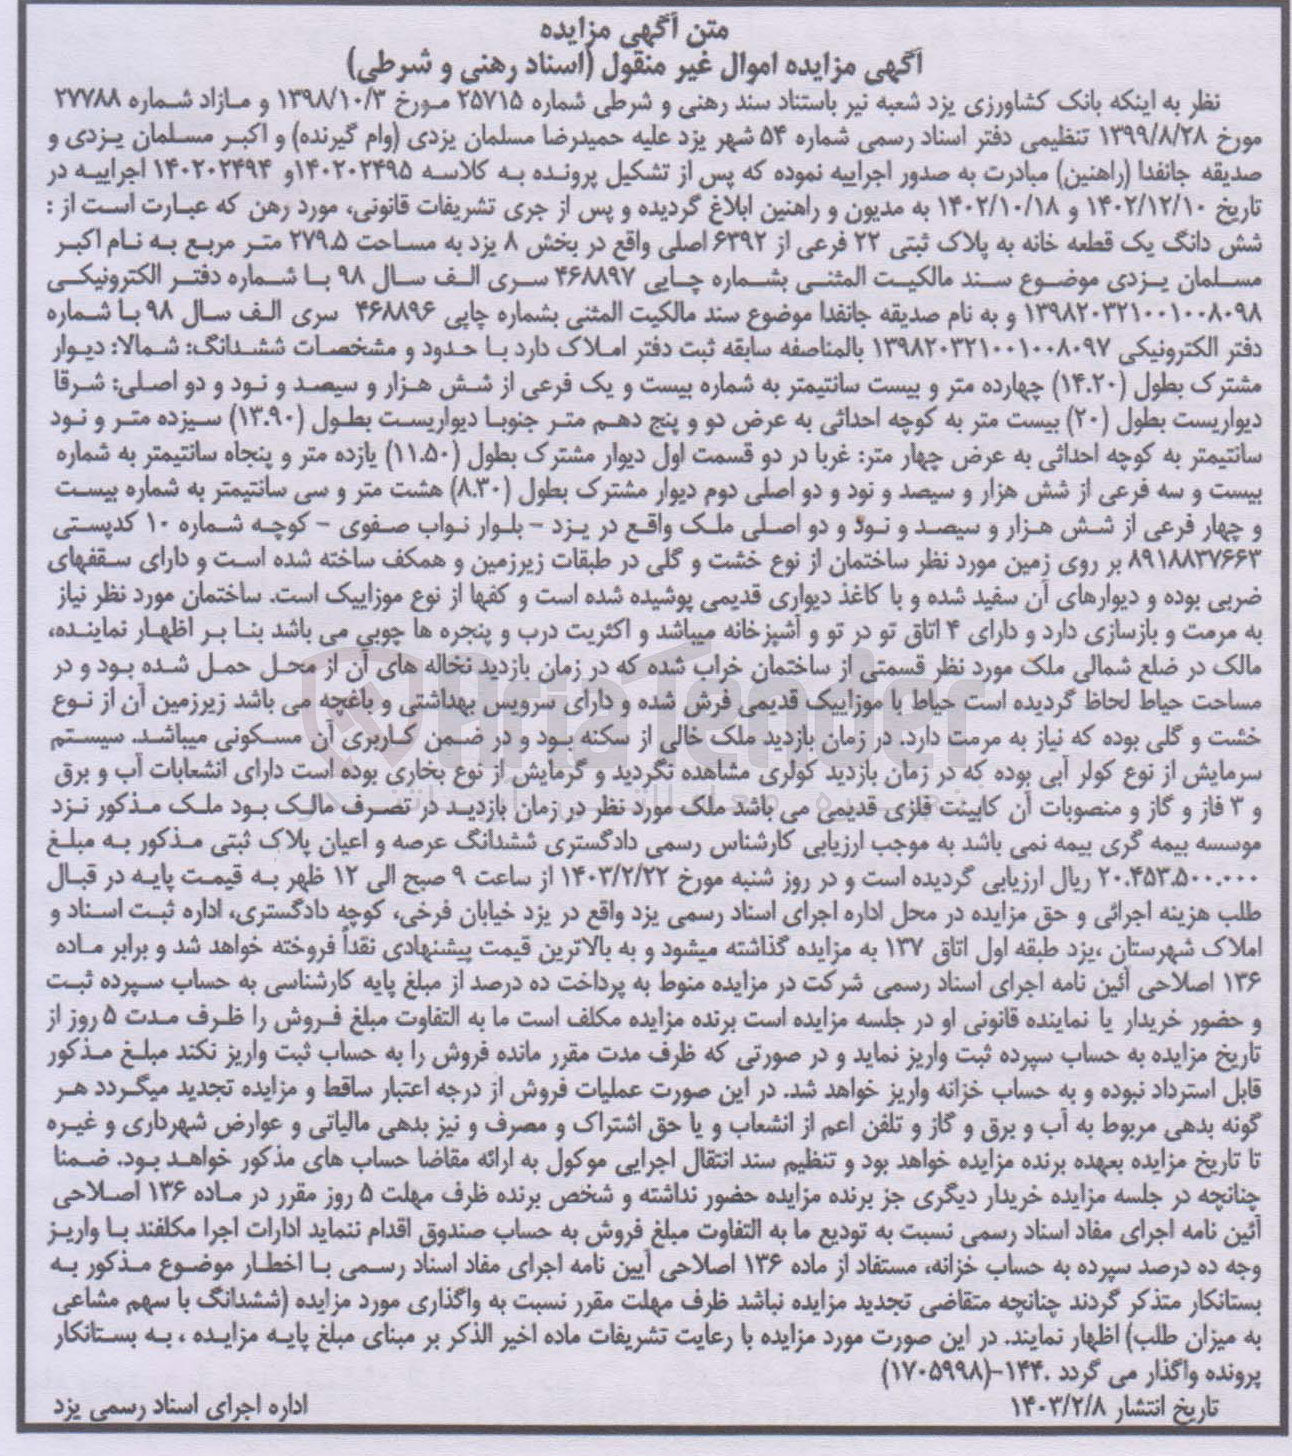 متن آگهی مزایده
آگهی مزایده اموال غیر منقول (اسناد رهنی و شرطی)
نظر به اینکه بانک کشاورزی یزد شعبه نیر باستناد سند رهنی و شرطی شماره ۲۵۷۱۵ مورخ ۱۳۹۸/۱۰/۳ و مازاد شماره ۲۷۷۸۸
مورخ ۱۳۹۹/۸/۲۸ تنظیمی دفتر اسناد رسمی شماره ۵۴ شهر یزد علیه حمیدرضا مسلمان یزدی (وام گیرنده) و اکبر مسلمان یزدی و
صدیقه جانفدا (راهنین) مبادرت به صدور اجراییه نموده که پس از تشکیل پرونده به کلاسه ۱۴۰۲۰۲۴۹۵و ۱۴۰۲۰۲۴۹۴ اجراییه در
تاریخ ۱۴۰۲/۱۲/۱۰ و ۱۴۰۲/۱۰/۱۸ به مدیون و راهنین ابلاغ گردیده و پس از جری تشریفات قانونی، مورد رهن که عبارت است از :
شش دانگ یک قطعه خانه به پلاک ثبتی ۲۲ فرعی از ۶۳۹۲ اصلی واقع در بخش ۸ یزد به مساحت ۲۷۹.۵ متر مربع به نام اکبر
مسلمان یزدی موضوع سند مالکیت المثنی بشماره چاپی ۴۶۸۸۹۷ سری الف سال ۹۸ با شماره دفتر الکترونیکی
۱۳۹۸۲۰۳۲۱۰۰۱۰۰۸۰۹۸ و به نام صدیقه جانفدا موضوع سند مالکیت المثنی بشماره چاپی ۴۶۸۸۹۶ سری الف سال ۹۸ با شماره
دفتر الکترونیکی ۱۳۹۸۲۰۳۲۱۰۰۱۰۰۸۰۹۷ بالمناصفه سابقه ثبت دفتر املاک دارد با حدود و مشخصات ششدانگ: شمالا: دیوار
مشترک بطول (۱۴.۲۰) چهارده متر و بیست سانتیمتر به شماره بیست و یک فرعی از شش هزار و سیصد و نود و دو اصلی: شرقا
دیواریست بطول (۲۰) بیست متر به کوچه احداثی به عرض دو و پنج دهم متر جنوبا دیواریست بطول (۱۳.۹۰) سیزده متر و نود
سانتیمتر به کوچه احداثی به عرض چهار متر: غربا در دو قسمت اول دیوار مشترک بطول (۱۱.۵۰) یازده متر و پنجاه سانتیمتر به شماره
بیست و سه فرعی از شش هزار و سیصد و نود و دو اصلی دوم دیوار مشترک بطول (۸.۳۰) هشت متر و سی سانتیمتر به شماره بیست
و چهار فرعی از شش هزار و سیصد و نود و دو اصلی ملک واقع در یزد - بلوار نواب صفوی - کوچه شماره ۱۰ کدپستی
۸۹۱۸۸۳۷۶۶۳ بر روی زمین مورد نظر ساختمان از نوع خشت و گلی در طبقات زیرزمین و همکف ساخته شده است و دارای سقفهای
ضربی بوده و دیوارهای آن سفید شده و با کاغذ دیواری قدیمی پوشیده شده است و کفها از نوع موزاییک است. ساختمان مورد نظر نیاز
به مرمت و بازسازی دارد و دارای ۴ اتاق تو در تو و آشپزخانه میباشد و اکثریت درب و پنجره ها چوبی می باشد بنا بر اظهار نماینده،
مالک در ضلع شمالی ملک مورد نظر قسمتی از ساختمان خراب شده که در زمان بازدید نخاله های آن از محل حمل شده بود و در
مساحت حیاط لحاظ گردیده است حیاط با موزاییک قدیمی فرش شده و دارای سرویس بهداشتی و باغچه می باشد زیرزمین آن از نوع
خشت و گلی بوده که نیاز به مرمت دارد. در زمان بازدید ملک خالی از سکنه بود و در ضمن کاربری آن مسکونی میباشد. سیستم
سرمایش از نوع کولر آبی بوده که در زمان بازدید کولری مشاهده نگردید و گرمایش از نوع بخاری بوده است دارای انشعابات آب و برق
و ۳ فاز و گاز و منصوبات آن کابینت فلزی قدیمی می باشد ملک مورد نظر در زمان بازدید در تصرف مالک بود ملک مذکور نزد
موسسه بیمه گری بیمه نمی باشد به موجب ارزیابی کارشناس رسمی دادگستری ششدانگ عرصه و اعیان پلاک ثبتی مذکور به مبلغ
۲۰.۴۵۳.۵۰۰.۰۰۰ ریال ارزیابی گردیده است و در روز شنبه مورخ ۱۴۰۳/۲/۲۲ از ساعت ۹ صبح الی ۱۲ ظهر به قیمت پایه در قبال
طلب هزینه اجرائی و حق مزایده در محل اداره اجرای اسناد رسمی یزد واقع در یزد خیابان فرخی، کوچه دادگستری، اداره ثبت اسناد و
املاک شهرستان ،یزد طبقه اول اتاق ۱۳۷ به مزایده گذاشته میشود و به بالاترین قیمت پیشنهادی نقداً فروخته خواهد شد و برابر ماده
۱۳۶ اصلاحی آئین نامه اجرای اسناد رسمی شرکت در مزایده منوط به پرداخت ده درصد از مبلغ پایه کارشناسی به حساب سپرده ثبت
و حضور خریدار یا نماینده قانونی او در جلسه مزایده است برنده مزایده مکلف است ما به التفاوت مبلغ فروش را ظرف مدت ۵ روز از
تاریخ مزایده به حساب سپرده ثبت واریز نماید و در صورتی که ظرف مدت مقرر مانده فروش را به حساب ثبت واریز نکند مبلغ مذکور
قابل استرداد نبوده و به حساب خزانه واریز خواهد شد. در این صورت عملیات فروش از درجه اعتبار ساقط و مزایده تجدید میگردد هر
گونه بدهی مربوط به آب و برق و گاز و تلفن اعم از انشعاب و یا حق اشتراک و مصرف و نیز بدهی مالیاتی و عوارض شهرداری و غیره
تا تاریخ مزایده بعهده برنده مزایده خواهد بود و تنظیم سند انتقال اجرایی موکول به ارائه مقاضا حساب های مذکور خواهد بود. ضمنا
چنانچه در جلسه مزایده خریدار دیگری جز برنده مزایده حضور نداشته و شخص برنده ظرف مهلت ۵ روز مقرر در ماده ۱۳۶ اصلاحی
آئین نامه اجرای مفاد اسناد رسمی نسبت به تودیع ما به التفاوت مبلغ فروش به حساب صندوق اقدام ننماید ادارات اجرا مکلفند با واریز
وجه ده درصد سپرده به حساب خزانه، مستفاد از ماده ۱۳۶ اصلاحی آیین نامه اجرای مفاد اسناد رسمی با اخطار موضوع مذکور به
بستانکار متذکر گردند چنانچه متقاضی تجدید مزایده نباشد ظرف مهلت مقرر نسبت به واگذاری مورد مزایده (ششدانگ با سهم مشاعی
به میزان طلب) اظهار نمایند. در این صورت مورد مزایده با رعایت تشریفات ماده اخیر الذکر بر مبنای مبلغ پایه مزایده ، به بستانکار
پرونده واگذار می گردد .۱۴۴-(۱۷۰۵۹۹۸)
تاریخ انتشار ۱۴۰۳/۲/۸
اداره اجرای اسناد رسمی یزد
AriaTender